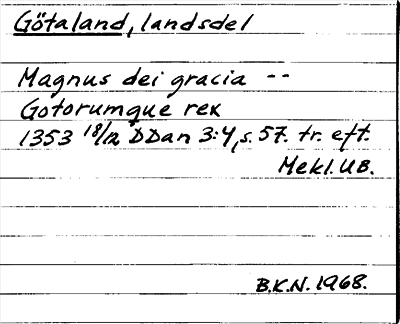 Götaland, landsdel
Magnus dei gracia --
Gotorumque rex
1353 18/12 DDan 3:4, s. 57. tr. eft.
Mekl. UB.
B.K.N. 1968.